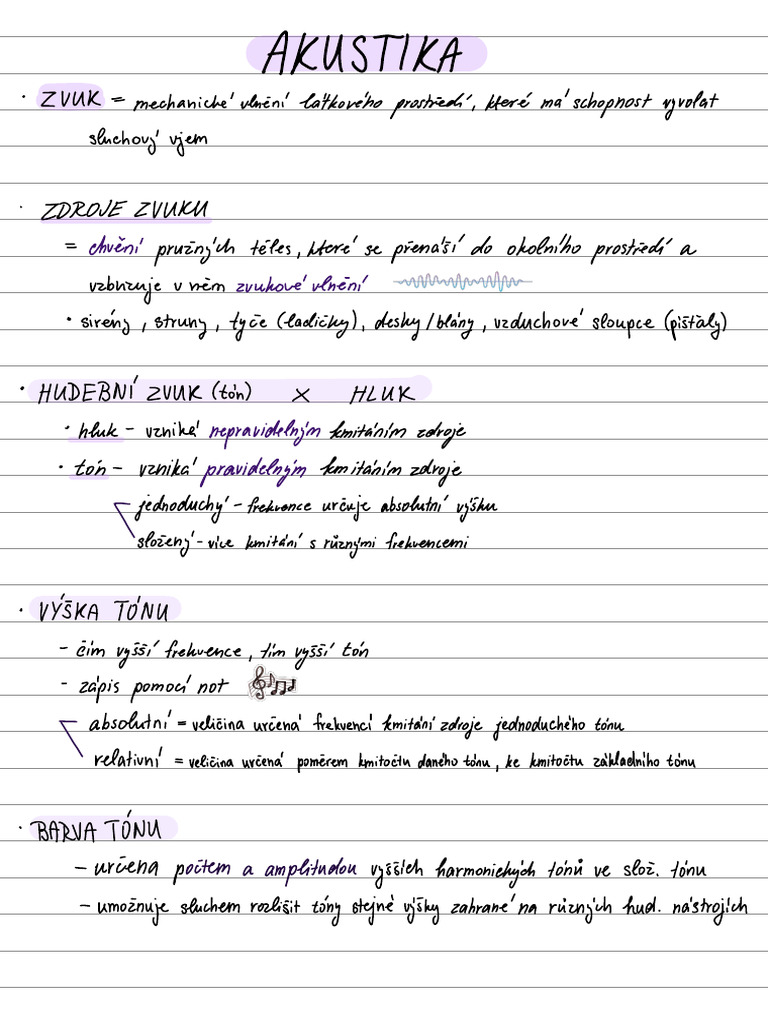 AKUSTIKA
· ZVUK = mechanické vlnění látkového prostředí, které má schopnost vyvolat
sluchový vjem
· ZDROJE ZVUKU
= chvění pružných těles, které se přenáší do okolního prostředí a
vzbuzuje v něm zvukové vlnění
• sirény, struny, tyče (ladičky), desky/blány, vzduchové sloupce (píšťaly)
· HUDEBNÍ ZVUK (tón) × HLUK
• hluk – vzniká nepravidelným kmitáním zdroje
• tón – vzniká pravidelným kmitáním zdroje
jednoduchý – frekvence určuje absolutní výšku
složený – více kmitání s různými frekvencemi
· VÝŠKA TÓNU
- čím vyšší frekvence, tím vyšší tón
- zápis pomocí not
absolutní = veličina určená frekvencí kmitání zdroje jednoduchého tónu
relativní = veličina určená poměrem kmitočtu daného tónu, ke kmitočtu základního tónu
· BARVA TÓNU
– určena počtem a amplitudou vyšších harmonických tónů ve slož. tónu
– umožnuje sluchem rozlišit tóny stejné výšky zahrané na různých hud. nástrojích